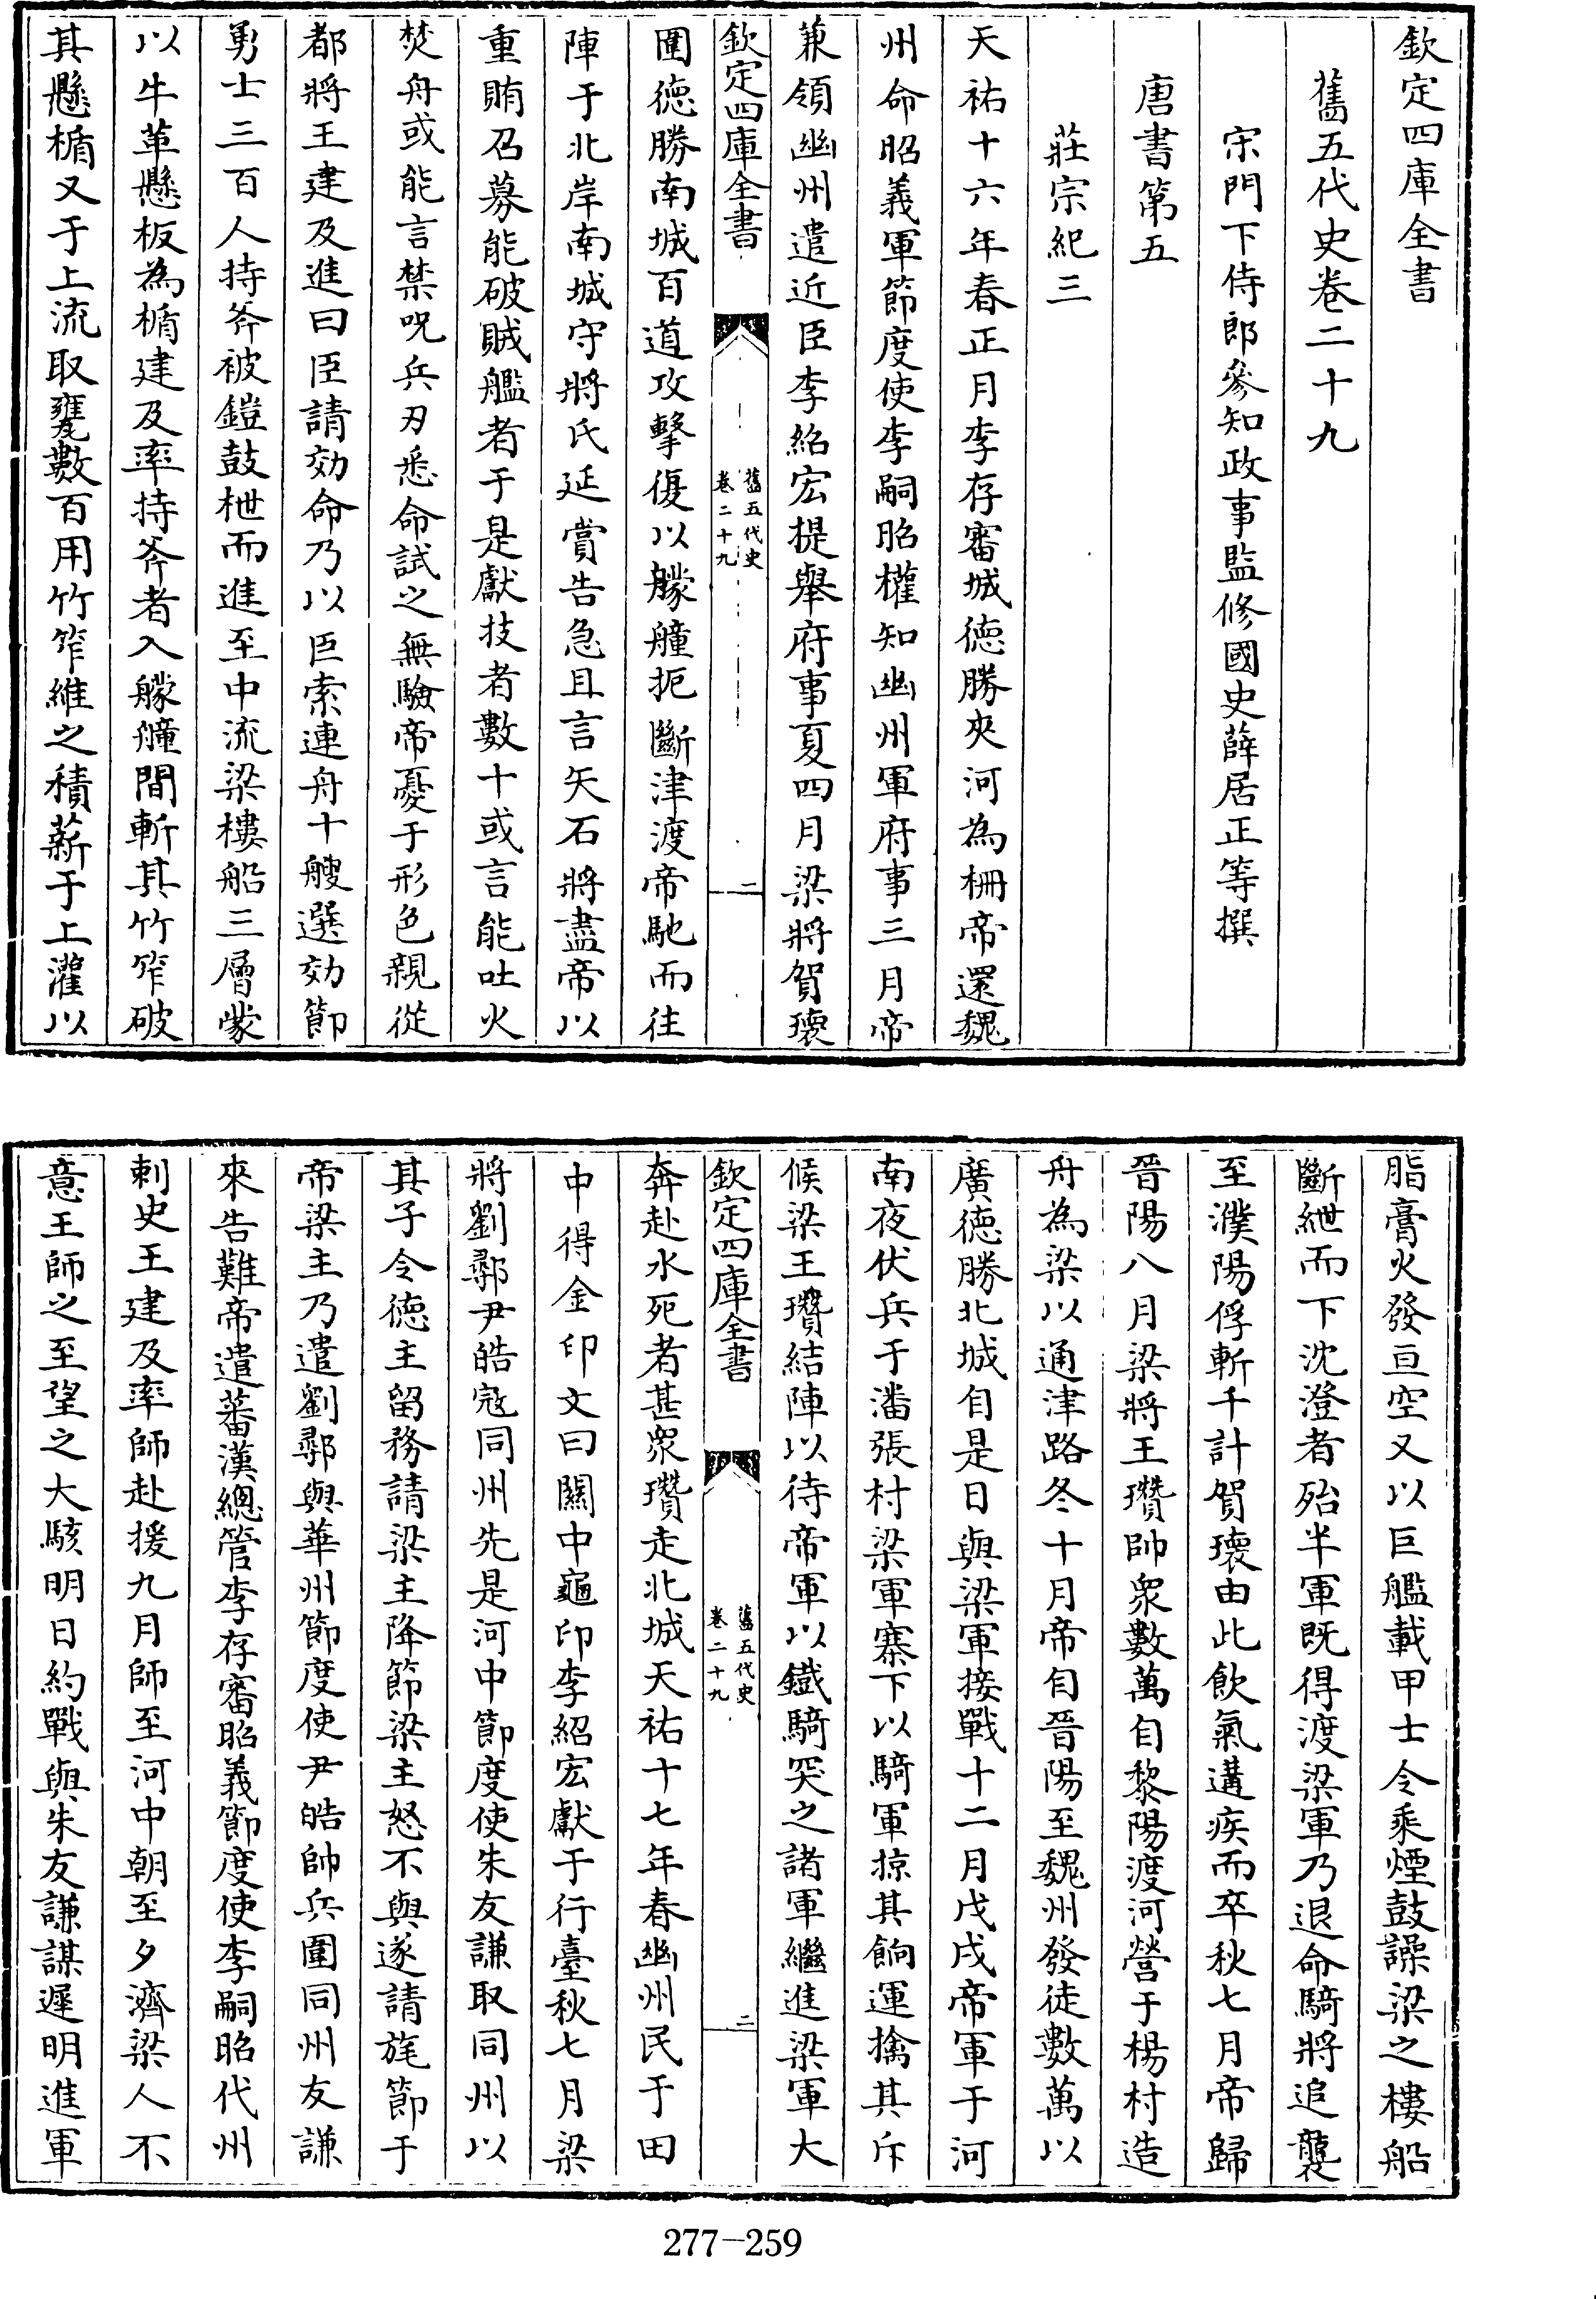 欽定四庫全書
舊五代史卷二十九
宋門下侍郎參知政事監修國史薛居正等撰
唐書第五
莊宗紀三
天祐十六年春正月李存審城德勝夾河為柵帝還魏
州命昭義軍節度使李嗣昭權知幽州軍府事三月帝
兼領幽州遣近臣李紹宏提舉府事夏四月梁將賀瓌
欽定四庫全書
舊五代史
卷二十九
一
圍德勝南城百道攻擊復以艨艟扼斷津渡帝馳而往
陣于北岸南城守將氏延賞告急且言矢石將盡帝以
重賄召募能破賊艦者于是獻技者數十或言能吐火
焚舟或能言禁呪兵刃悉命試之無驗帝憂于形色親從
都將王建及進曰臣請効命乃以巨索連舟十艘選効節
勇士三百人持斧被鎧鼓枻而進至中流梁樓船三層蒙
以牛革懸板為楯建及率持斧者入艨艟間斬其竹笮破
其懸楯又于上流取甕數百用竹笮維之積薪于上灌以
脂膏火發亘空又以巨艦載甲士令乘煙鼓譟梁之樓船
斷紲而下沈澄者殆半軍既得渡梁軍乃退命騎將追襲
至濮陽俘斬千計賀瓌由此飲氣遘疾而卒秋七月帝歸
晉陽八月梁將王瓚帥衆數萬自黎陽渡河營于楊村造
舟為梁以通津路冬十月帝自晉陽至魏州發徒數萬以
廣德勝北城自是日與梁軍接戰十二月戊戌帝軍于河
南夜伏兵于潘張村梁軍寨下以騎軍掠其餉運擒其斥
候梁王瓚結陣以待帝軍以鐵騎突之諸軍繼進梁軍大
欽定四庫全書
舊五代史
卷二十九
二
奔赴水死者甚衆瓚走北城天祐十七年春幽州民于田
中得金印文曰關中龜印李紹宏獻于行臺秋七月梁
將劉鄩尹皓寇同州先是河中節度使朱友謙取同州以
其子令德主留務請梁主降節梁主怒不與遂請旄節于
帝梁主乃遣劉鄩與華州節度使尹皓帥兵圍同州友謙
來告難帝遣蕃漢總管李存審昭義節度使李嗣昭代州
刺史王建及率師赴援九月師至河中朝至夕濟梁人不
意王師之至望之大駭明日約戰與朱友謙謀遲明進軍
277-259